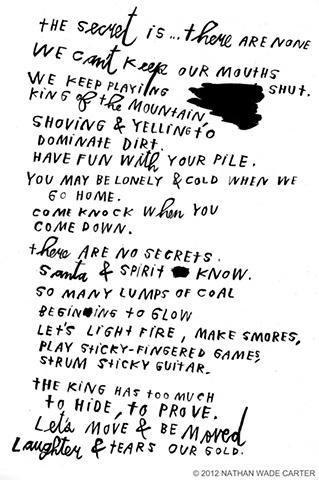 THE secret IS... there ARE NONE
WE Cant Keep OUR MOUTHS
SHUT.
WE KEEP PLAYING
KING of the MOUNTAIN,
SHOVING & YELLING to
DOMINATE DIRT.
HAVE FUN with YOUR PILE.
YOU MAY BE LONELY & COLD WHEN WE
GO HOME.
COME KNOCK when YOU
COME DOWN.
there ARE NO SECRETS.
Santa & SPIRIT KNOW.
SO MANY LUMPS OF COAL
BEGINNING TO GLOW
LET'S LIGHT FIRE, MAKE SMORES,
PLAY STICKY-FINGERED GAMES,
STRUM STICKY GUITAR.
THE KING HAS too MUCH
to HIDE, to PROVE.
Let's MOVE & BE Moved
Laughter & tEARS OUR GOLD.
© 2012 NATHAN WADE CARTER